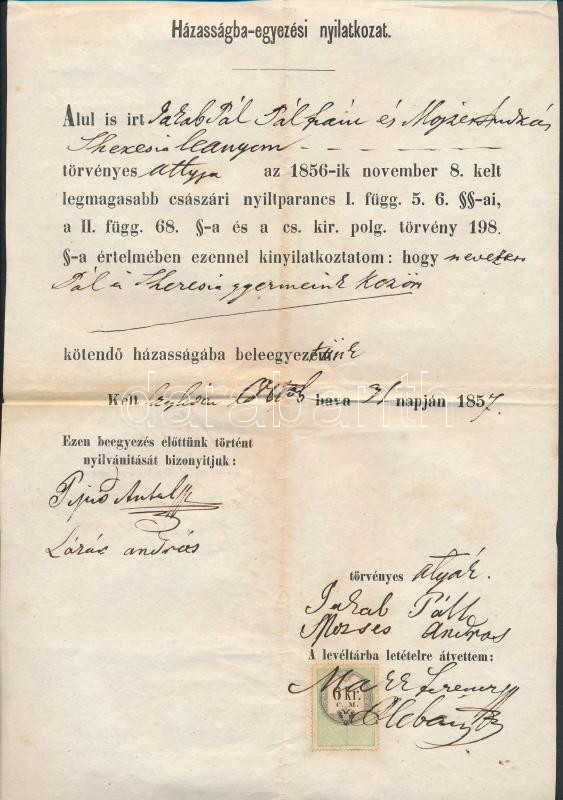 Házasságba-egyezési nyilatkozat.
Alul is irt Jakab Pál Pál fiam és Mojzes András
Theresia leanyom
törvényes attyja az 1856-ik november 8. kelt
legmagasabb császári nyiltparancs I. függ. 5. 6. §§-ai,
a II. függ. 68. §-a és a cs. kir. polg. törvény 198.
§-a értelmében ezennel kinyilatkoztatom: hogy nevezett
Pál és Theresia gyermeink közön
kötendő házasságába beleegyeztünk
Kelt Octob hava 31 napján 1857.
Ezen beegyezés előttünk történt
nyilvánitását bizonyitjuk:
Antal
andrós
törvényes atyák.
Jakab Páll
Mozses Andros
A levéltárba letételre átvettem:
Ferencz
Plebános
6 Kr.
C. M.
darabanth